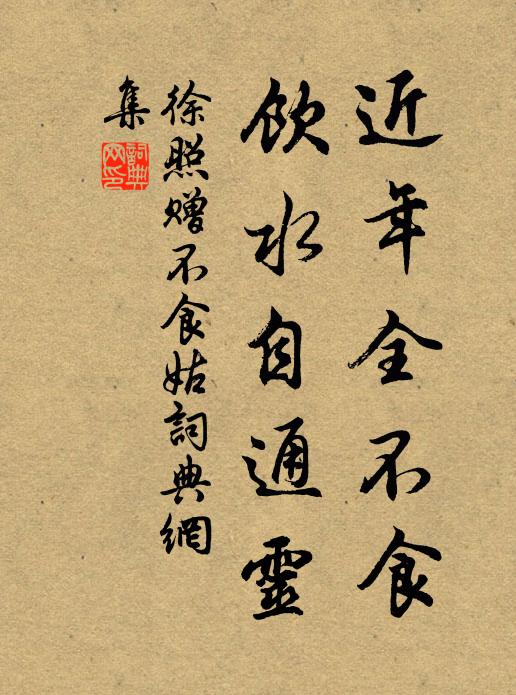 近年全不食
飲水自通靈
徐照贈不食姑詞典網
集
詞典
网印